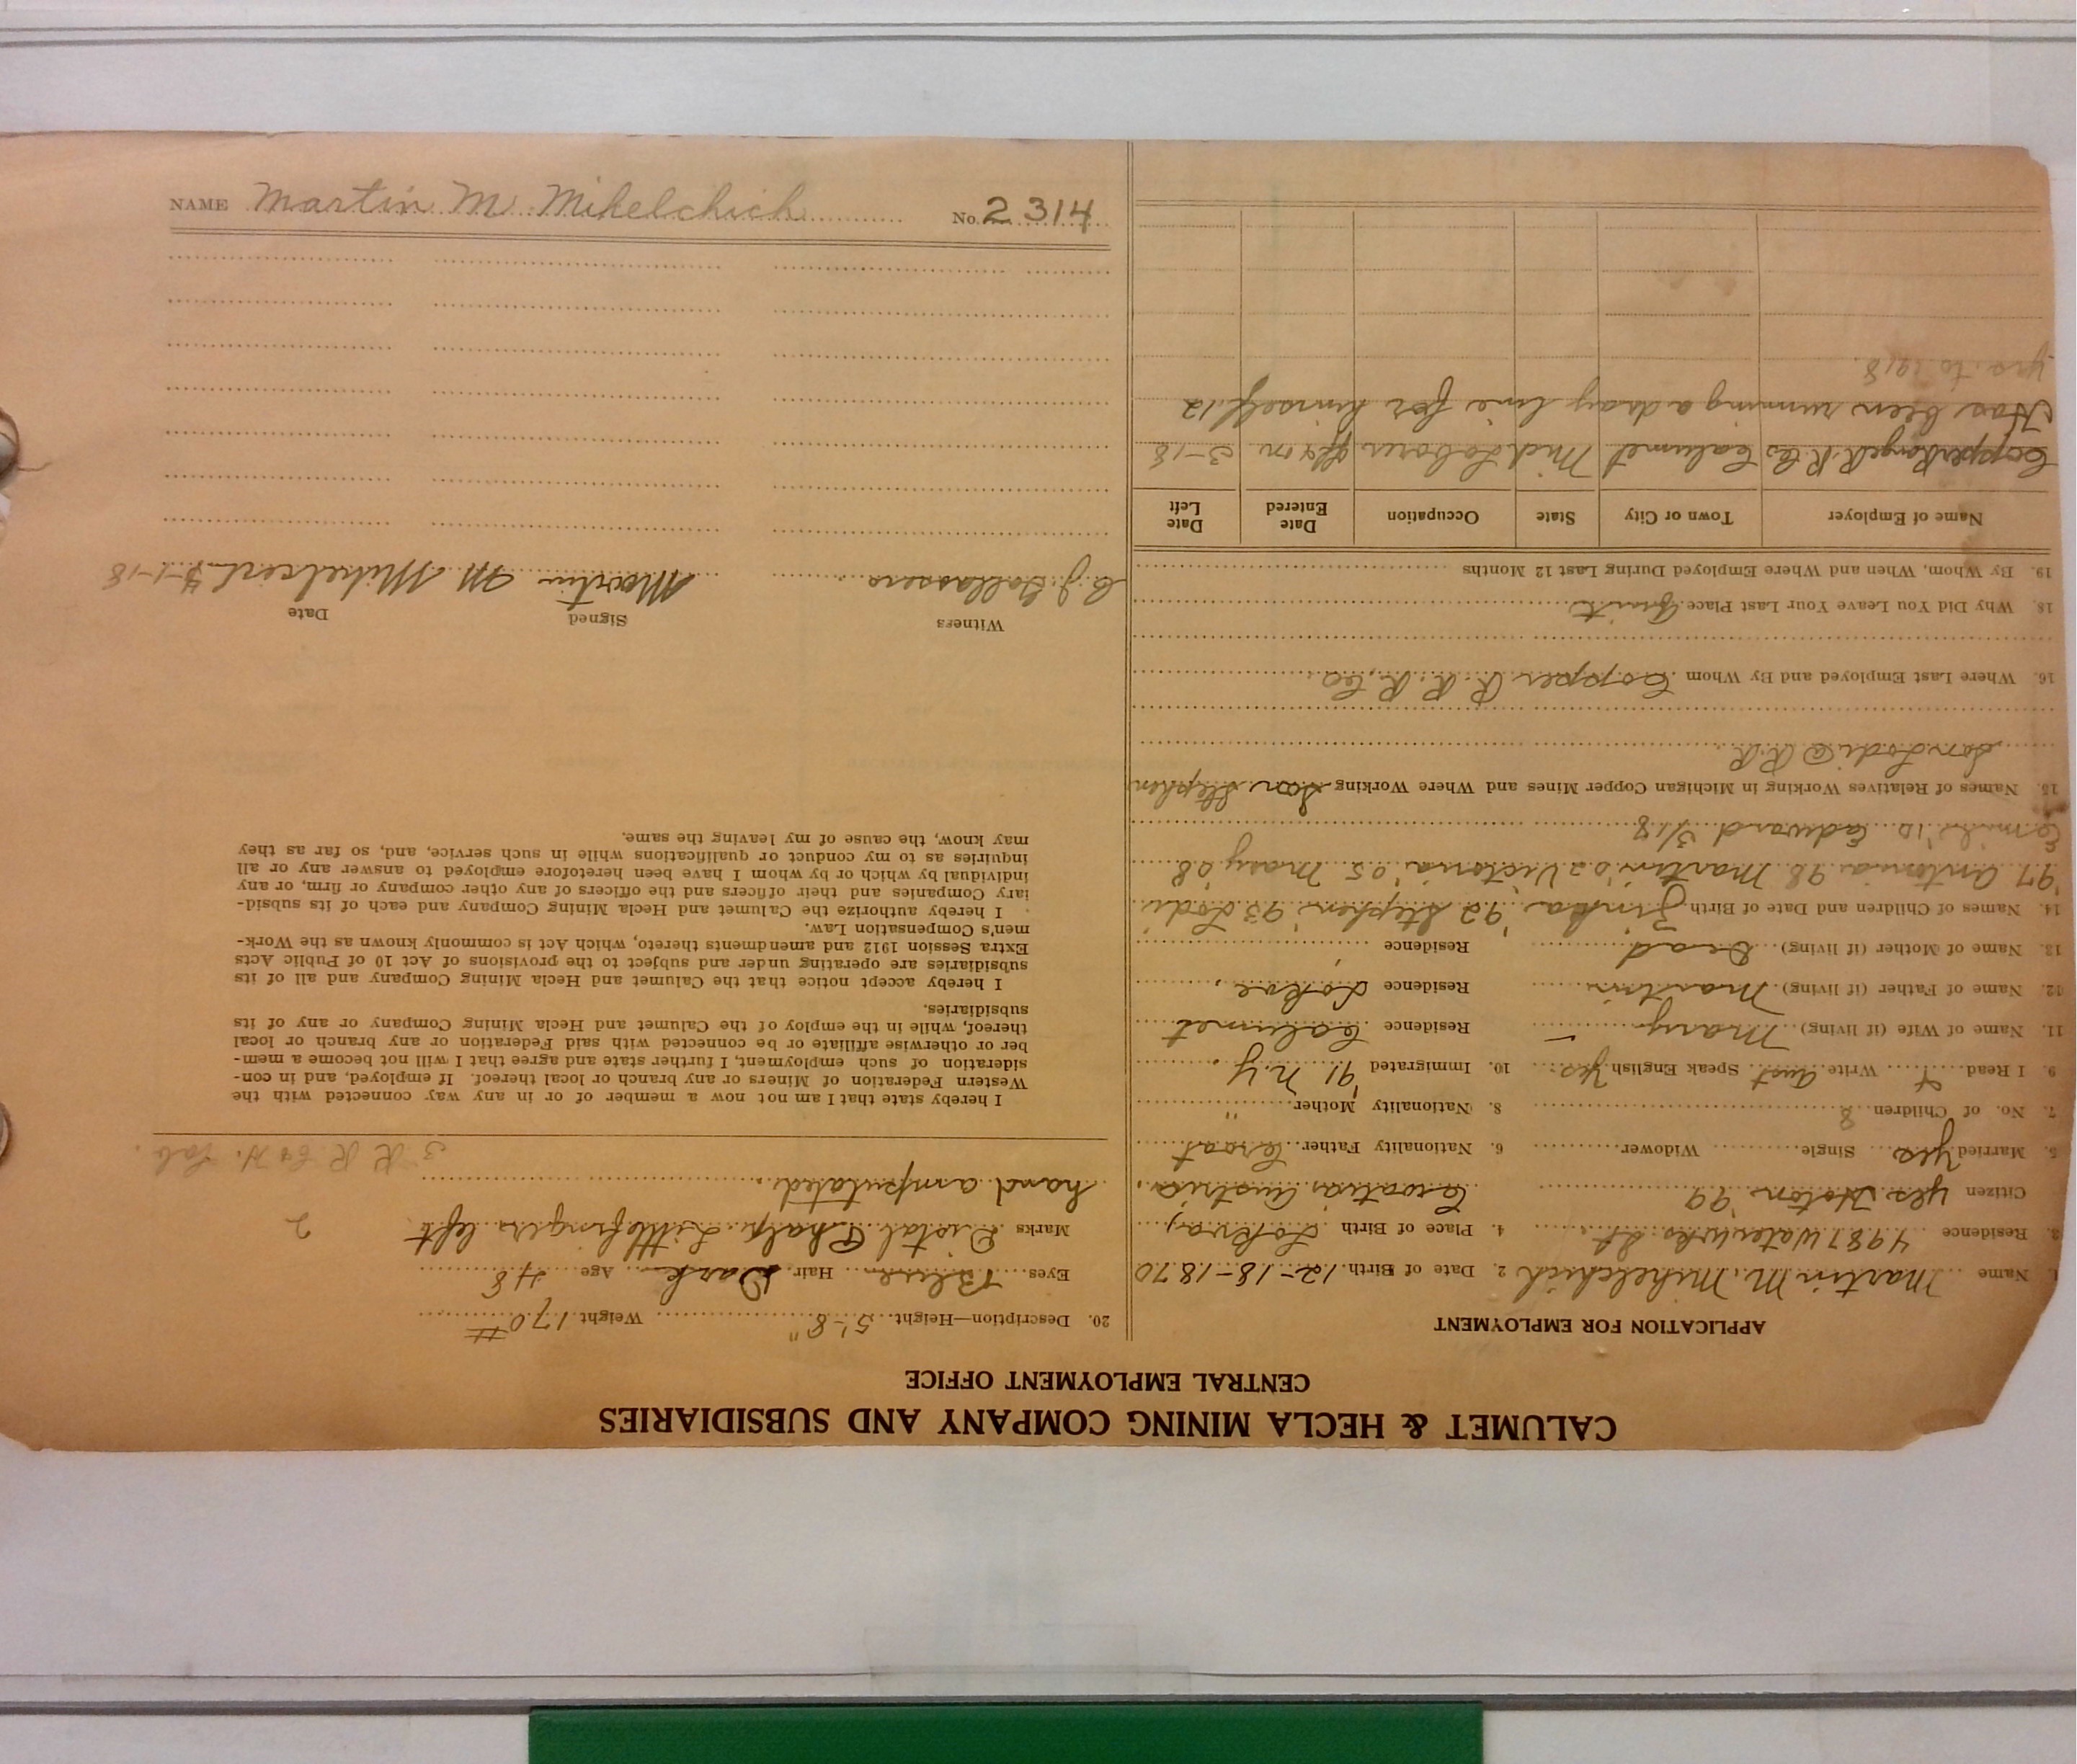 CALUMET & HECLA MINING COMPANY AND SUBSIDIARIES
CENTRAL EMPLOYMENT OFFICE
APPLICATION FOR EMPLOYMENT
1. Name Martin M. Mihelchich 2. Date of Birth 12-18-1870
3. Residence 4987 Waterwks St. 4. Place of Birth Lokva,
Citizen yes Hoton '99 Croatia Austria,
5. Married yes Single Widower 6. Nationality Father Croat
7. No. of Children 8 8. Nationality Mother "
9. I Read + Write Aust Speak English yes 10. Immigrated '91 N.Y.
11. Name of Wife (if living) Mary Residence Calumet
12. Name of Father (if living) Martin Residence
13. Name of Mother (if living) Dead Residence
14. Names of Children and Date of Birth '92 Stephen '93 Lodi
'97 Antonia 98 Martin '02 Victoria '05 Mary '08
'10 Edward 3/18
15. Names of Relatives Working in Michigan Copper Mines and Where Working Son Stephen
Son Lodi @ RR
16. Where Last Employed and By Whom Copper R. R. R. Co
18. Why Did You Leave Your Last Place Quit
19. By Whom, When and Where Employed During Last 12 Months
Name of Employer Town or City State Occupation Date Entered Date Left
Copper Range R.R. Co Calumet Mich Laborer 3-18
Has been running a dray line for himself 12
yrs. to 1918.
20. Description—Height 5'-8" Weight 170 #
Eyes Blue Hair Dark Age 48
Marks Distal Phalx. Little finger left 2
hand amputated.
3 R R Co H. Lab.
I hereby state that I am not now a member of or in any way connected with the
Western Federation of Miners or any branch or local thereof. If employed, and in con-
sideration of such employment, I further state and agree that I will not become a mem-
ber or otherwise affiliate or be connected with said Federation or any branch or local
thereof, while in the employ of the Calumet and Hecla Mining Company or any of its
subsidiaries.
I hereby accept notice that the Calumet and Hecla Mining Company and all of its
subsidiaries are operating under and subject to the provisions of Act 10 of Public Acts
Extra Session 1912 and amendments thereto, which Act is commonly known as the Work-
men's Compensation Law.
I hereby authorize the Calumet and Hecla Mining Company and each of its subsid-
iary Companies and their officers and the officers of any other company or firm, or any
individual by which or by whom I have been heretofore employed to answer any or all
inquiries as to my conduct or qualifications while in such service, and, so far as they
may know, the cause of my leaving the same.
Witness Signed Date
Martin M Mihelcich
NAME Martin M Mihelchich No. 2314